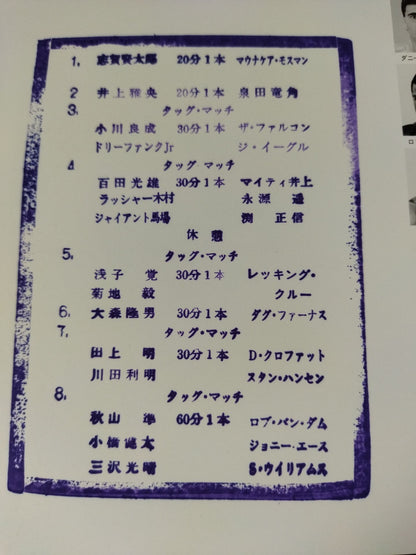 1. 志賀賢太郎 20分1本 マウナケア・モスマン
2 井上雅央 20分1本 泉田竜角
3. タッグ・マッチ
小川良成 30分1本 ザ・ファルコン
ドリーファンクJr ジ・イーグル
4. タッグ マッチ
百田光雄 30分1本 マイティ井上
ラッシャー木村 永源 遥
ジャイアント馬場 渕 正信
休憩
5. タッグ・マッチ
浅子 覚 30分1本 レッキング・
菊地 毅 クルー
6. 大森隆男 30分1本 ダグ・ファーナス
7. タッグ・マッチ
田上 明 30分1本 D・クロファット
川田利明 スタン・ハンセン
8. タッグ・マッチ
秋山 準 60分1本 ロブ・バン・ダム
小橋健太 ジョニー・エース
三沢光晴 S・ウイリアムス
ダニー
ロ